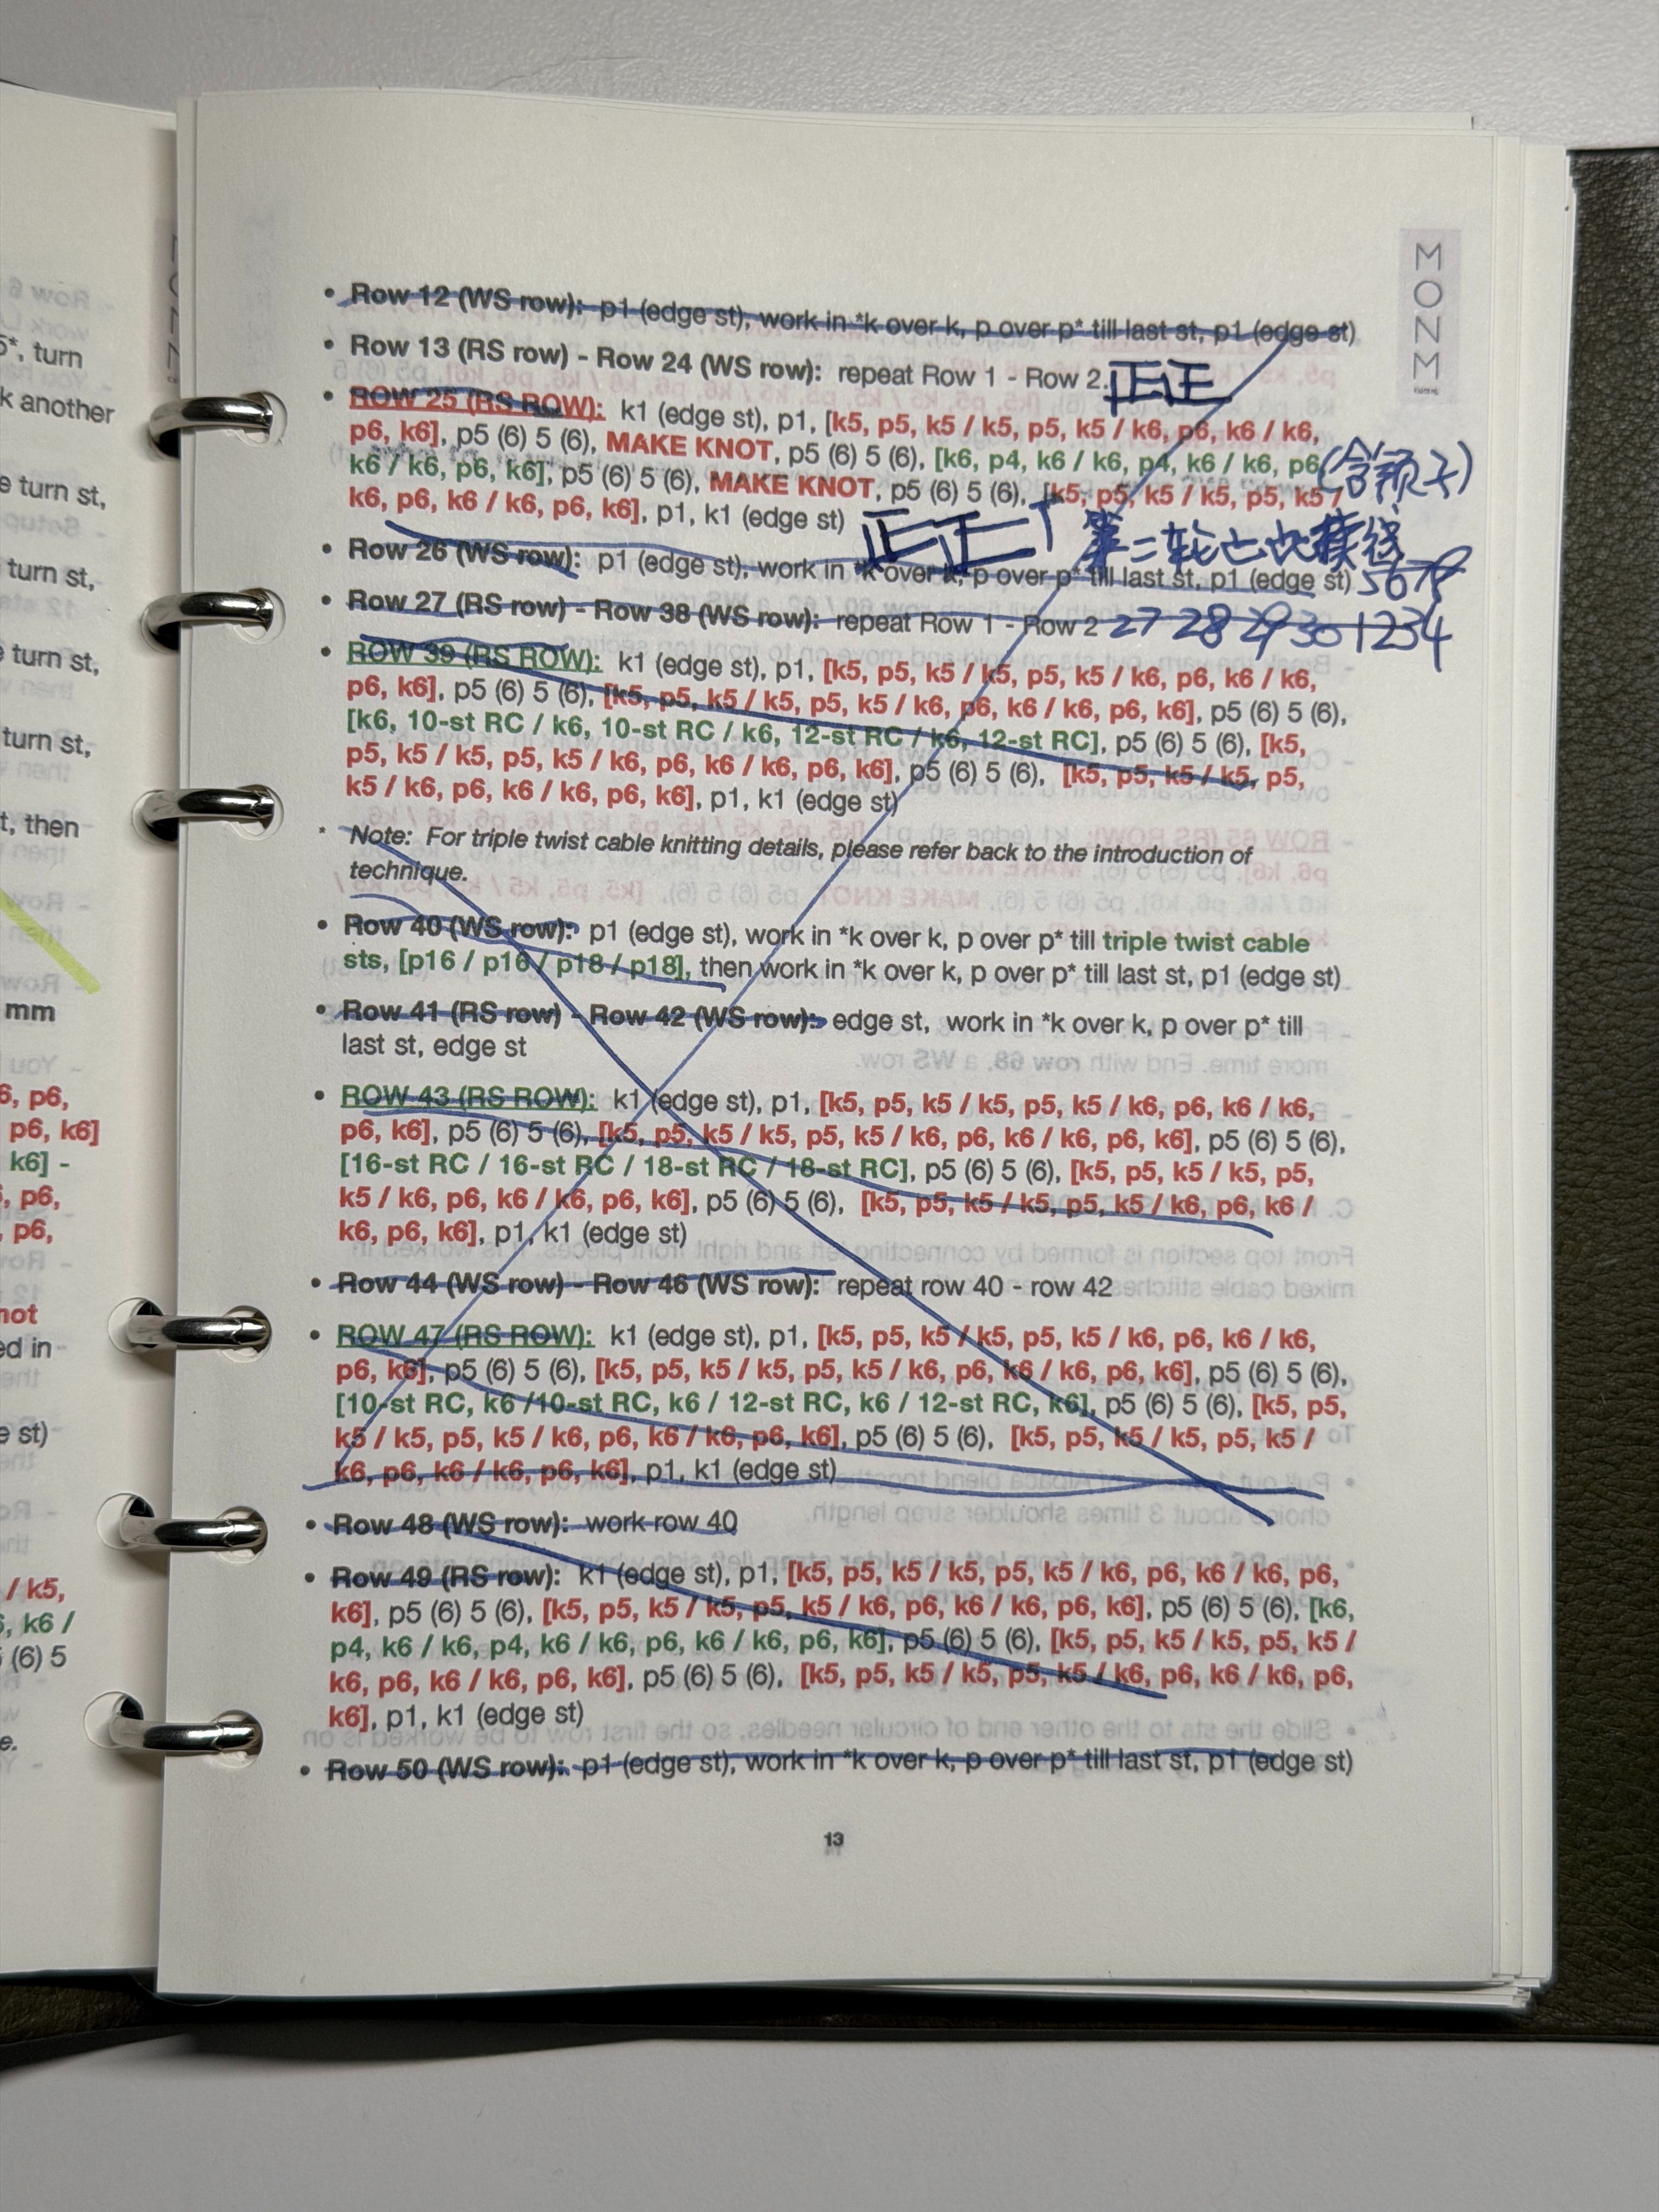 5*, turn
k another
e turn st,
turn st,
e turn st,
turn st,
t, then
mm
6, p6,
p6, k6]
k6] -
, p6,
, p6,
not
ed in
e st)
/ k5,
, k6 /
(6) 5
e.
MONM
• Row 12 (WS row): p1 (edge st), work in *k over k, p over p* till last st, p1 (edge st)
• Row 13 (RS row) - Row 24 (WS row): repeat Row 1 - Row 2. 正正
• ROW 25 (RS ROW): k1 (edge st), p1, [k5, p5, k5 / k5, p5, k5 / k6, p6, k6 / k6,
p6, k6], p5 (6) 5 (6), MAKE KNOT, p5 (6) 5 (6), [k6, p4, k6 / k6, p4, k6 / k6, p6,
(含预子)
k6 / k6, p6, k6], p5 (6) 5 (6), MAKE KNOT, p5 (6) 5 (6), [k5, p5, k5 / k5, p5, k5 /
k6, p6, k6 / k6, p6, k6], p1, k1 (edge st) 正正 第二轮
• Row 26 (WS row): p1 (edge st), work in *k over k, p over p* till last st, p1 (edge st) 5678
• Row 27 (RS row) - Row 38 (WS row): repeat Row 1 - Row 2 27 28 29 30 1 2 3 4
• ROW 39 (RS ROW): k1 (edge st), p1, [k5, p5, k5 / k5, p5, k5 / k6, p6, k6 / k6,
p6, k6], p5 (6) 5 (6), [k5, p5, k5 / k5, p5, k5 / k6, p6, k6 / k6, p6, k6], p5 (6) 5 (6),
[k6, 10-st RC / k6, 10-st RC / k6, 12-st RC / k6, 12-st RC], p5 (6) 5 (6), [k5,
p5, k5 / k5, p5, k5 / k6, p6, k6 / k6, p6, k6], p5 (6) 5 (6), [k5, p5, k5 / k5, p5,
k5 / k6, p6, k6 / k6, p6, k6], p1, k1 (edge st)
* Note: For triple twist cable knitting details, please refer back to the introduction of
technique.
• Row 40 (WS row): p1 (edge st), work in *k over k, p over p* till triple twist cable
sts, [p16 / p16 / p18 / p18], then work in *k over k, p over p* till last st, p1 (edge st)
• Row 41 (RS row) - Row 42 (WS row): edge st, work in *k over k, p over p* till
last st, edge st
• ROW 43 (RS ROW): k1 (edge st), p1, [k5, p5, k5 / k5, p5, k5 / k6, p6, k6 / k6,
p6, k6], p5 (6) 5 (6), [k5, p5, k5 / k5, p5, k5 / k6, p6, k6 / k6, p6, k6], p5 (6) 5 (6),
[16-st RC / 16-st RC / 18-st RC / 18-st RC], p5 (6) 5 (6), [k5, p5, k5 / k5, p5,
k5 / k6, p6, k6 / k6, p6, k6], p5 (6) 5 (6), [k5, p5, k5 / k5, p5, k5 / k6, p6, k6 /
k6, p6, k6], p1, k1 (edge st)
• Row 44 (WS row) - Row 46 (WS row): repeat row 40 - row 42
• ROW 47 (RS ROW): k1 (edge st), p1, [k5, p5, k5 / k5, p5, k5 / k6, p6, k6 / k6,
p6, k6], p5 (6) 5 (6), [k5, p5, k5 / k5, p5, k5 / k6, p6, k6 / k6, p6, k6], p5 (6) 5 (6),
[10-st RC, k6 /10-st RC, k6 / 12-st RC, k6 / 12-st RC, k6], p5 (6) 5 (6), [k5, p5,
k5 / k5, p5, k5 / k6, p6, k6 / k6, p6, k6], p5 (6) 5 (6), [k5, p5, k5 / k5, p5, k5 /
k6, p6, k6 / k6, p6, k6], p1, k1 (edge st)
• Row 48 (WS row): work row 40
• Row 49 (RS row): k1 (edge st), p1, [k5, p5, k5 / k5, p5, k5 / k6, p6, k6 / k6, p6,
k6], p5 (6) 5 (6), [k5, p5, k5 / k5, p5, k5 / k6, p6, k6 / k6, p6, k6], p5 (6) 5 (6), [k6,
p4, k6 / k6, p4, k6 / k6, p6, k6 / k6, p6, k6], p5 (6) 5 (6), [k5, p5, k5 / k5, p5, k5 /
k6, p6, k6 / k6, p6, k6], p5 (6) 5 (6), [k5, p5, k5 / k5, p5, k5 / k6, p6, k6 / k6, p6,
k6], p1, k1 (edge st)
• Row 50 (WS row): p1 (edge st), work in *k over k, p over p* till last st, p1 (edge st)
13